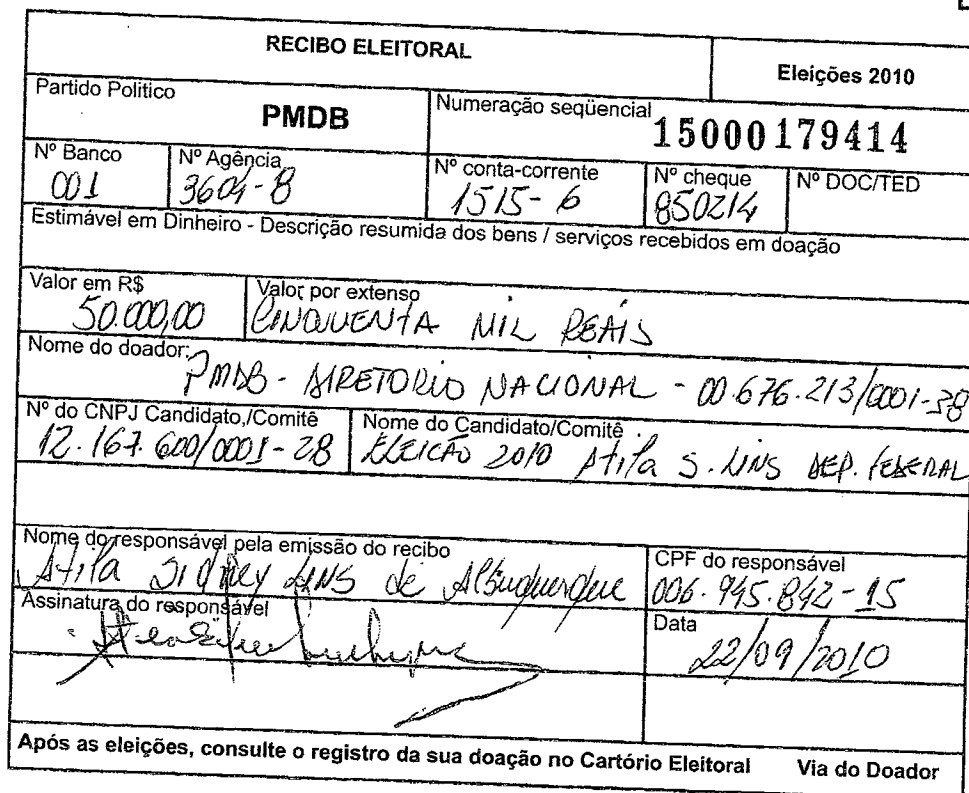 RECIBO ELEITORAL
Eleições 2010
Partido Politico
PMDB
Numeração seqüencial
15000179414
Nº Banco
001
Nº Agência
3604-8
Nº conta-corrente
1515-6
Nº cheque
850214
Nº DOC/TED
Estimável em Dinheiro - Descrição resumida dos bens / serviços recebidos em doação
Valor em R$
50.000,00
Valor por extenso
CINQUENTA MIL REAIS
Nome do doador:
PMDB - DIRETORIO NACIONAL - 00.676.213/0001-38
Nº do CNPJ Candidato,/Comitê
12.167.600/0001-28
Nome do Candidato/Comitê
ELEICÃO 2010 Atila S. LINS DEP. FEDERAL
Nome do responsável pela emissão do recibo
Atila Sidney LINS de Albuquerque
CPF do responsável
006.945.842-15
Assinatura do responsável
Data
22/09/2010
Após as eleições, consulte o registro da sua doação no Cartório Eleitoral Via do Doador